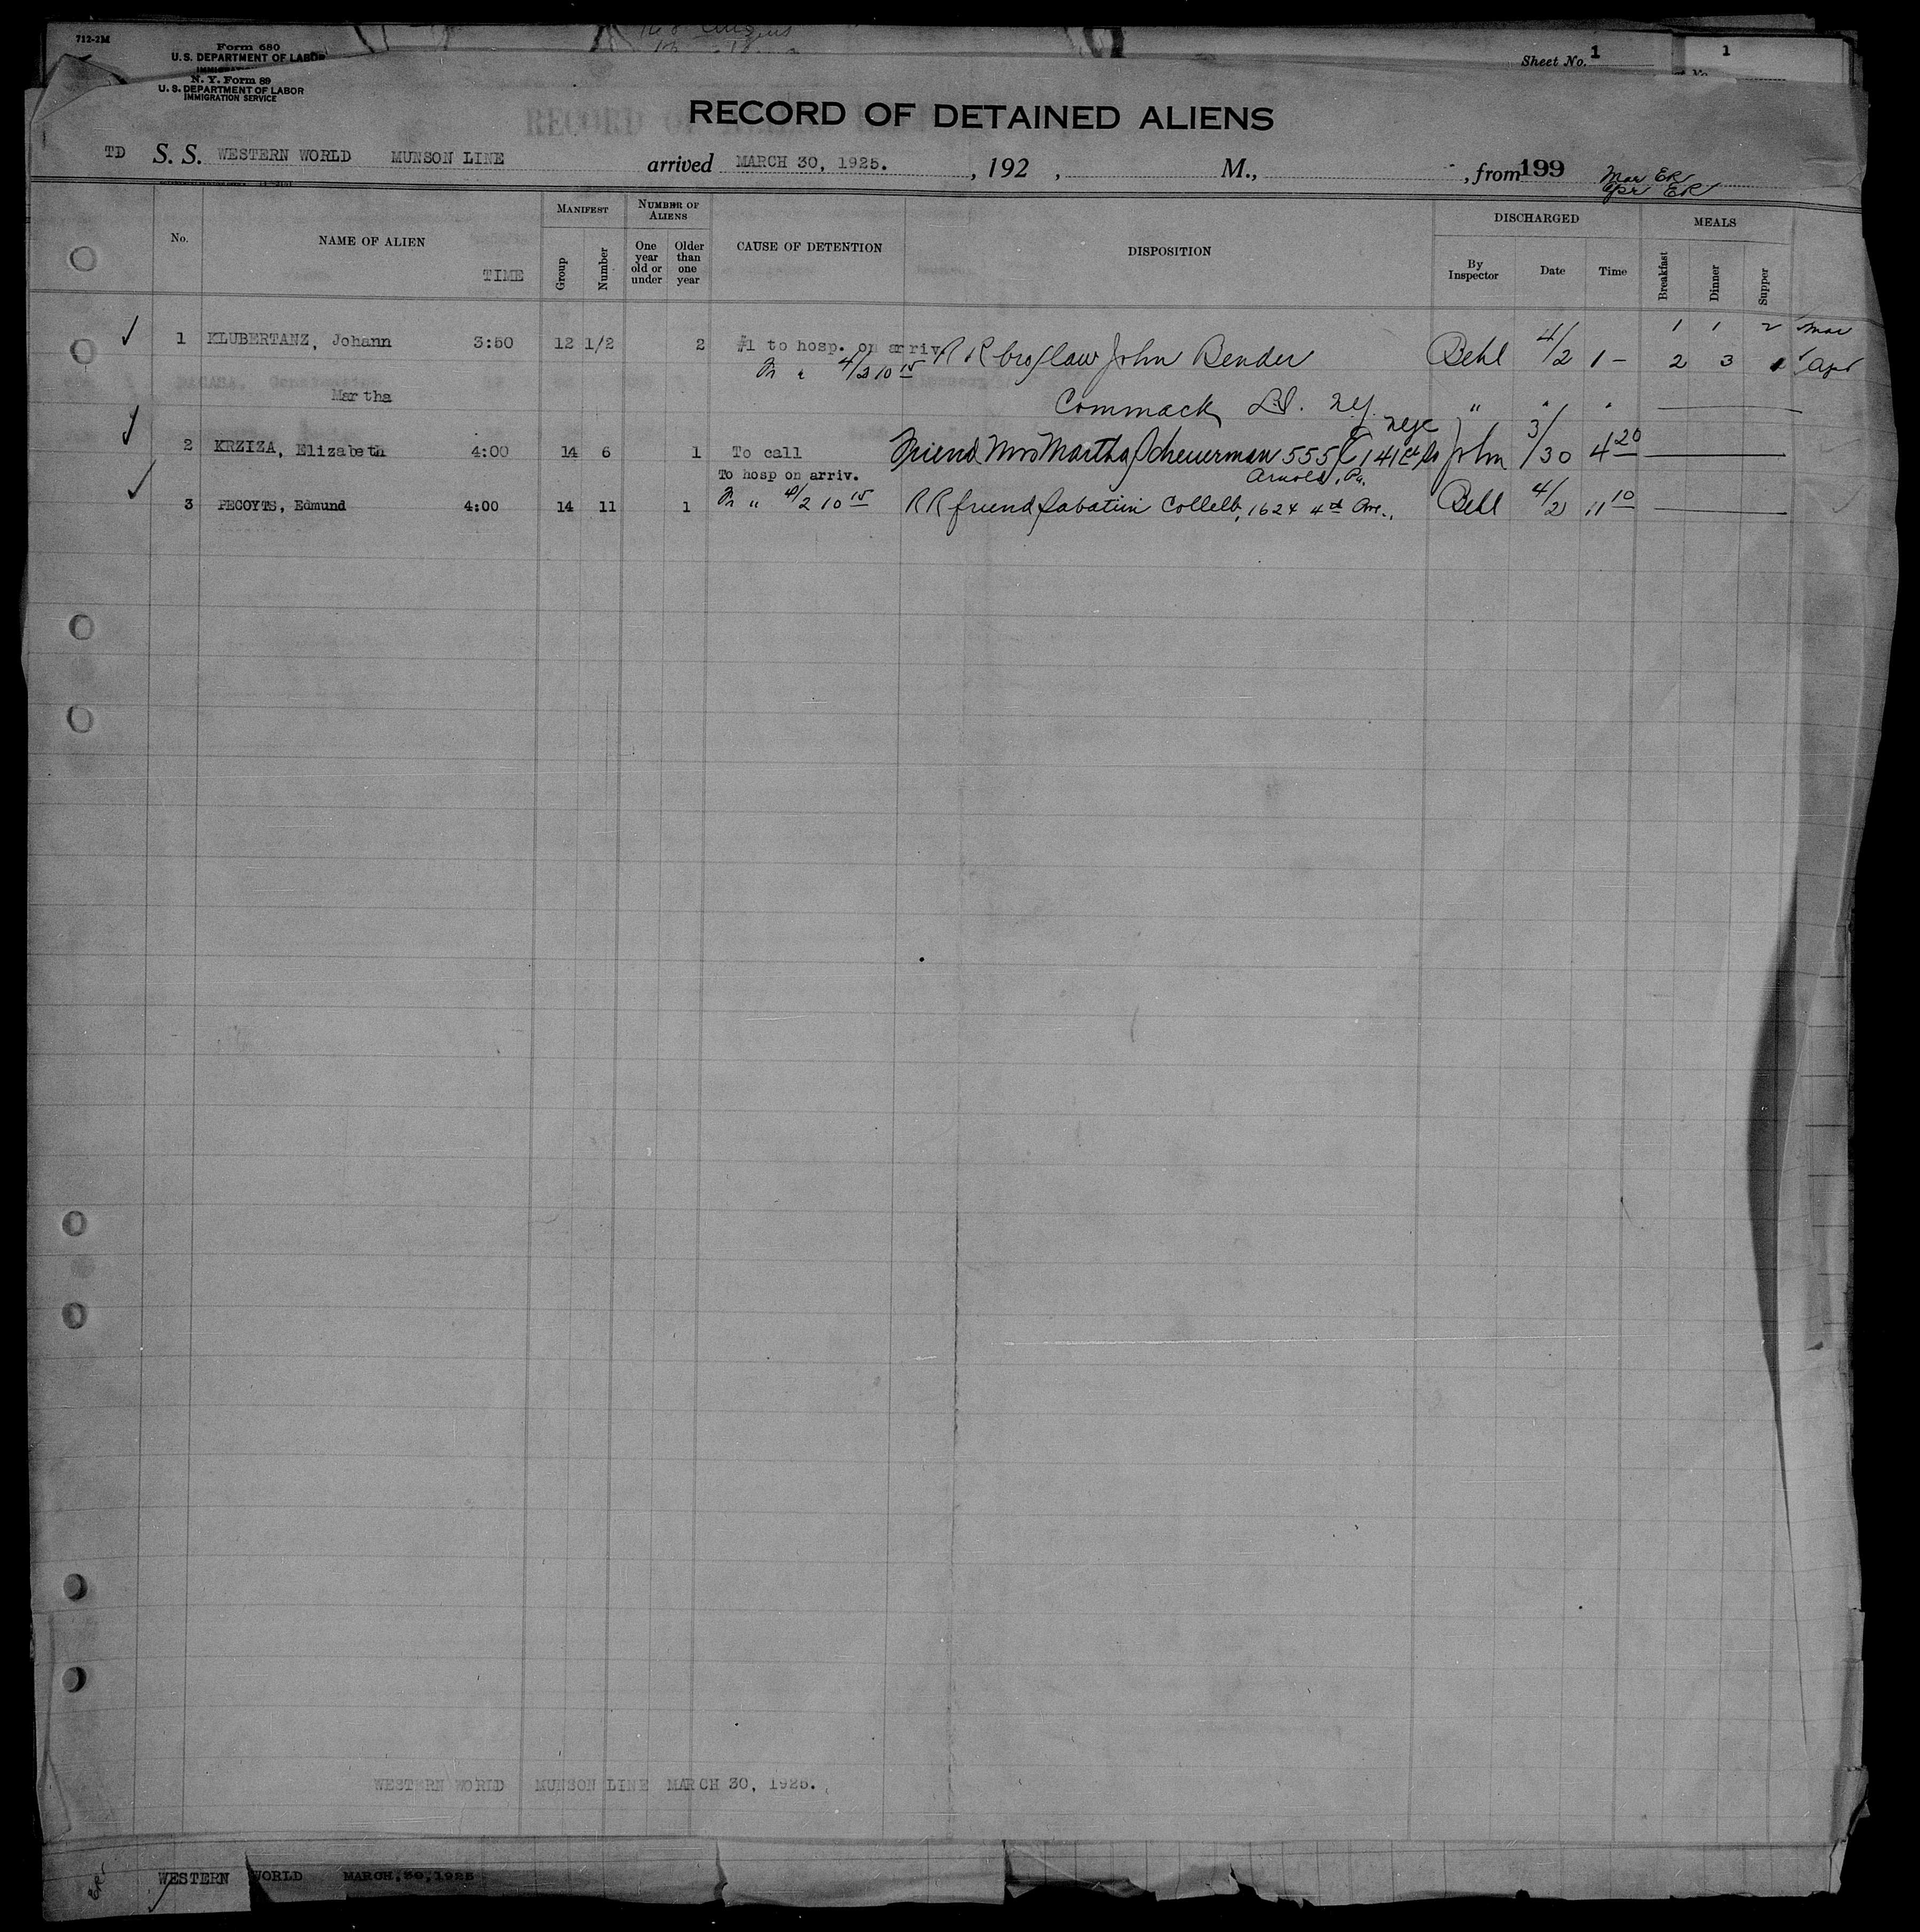 712-2M
Form 680
U.S. DEPARTMENT OF LABOR
N. Y. Form 89
U. S. DEPARTMENT OF LABOR
IMMIGRATION SERVICE
Sheet No. 1
1
RECORD OF DETAINED ALIENS
TD S. S. WESTERN WORLD MUNSON LINE arrived MARCH 30, 1925. , 192 , M., , from 199 Mar ER
Apr ER
No. NAME OF ALIEN TIME MANIFEST Group Number NUMBER OF ALIENS One year old or under Older than one year CAUSE OF DETENTION DISPOSITION DISCHARGED By Inspector Date Time MEALS Breakfast Dinner Supper
1 KLUBERTANZ, Johann 3:50 12 1/2 2 #1 to hosp. on arriv. R R bro/law John Bender Behl 4/2 1 - 1 1 2 Mar
4/2 10 15 2 3 1 Apr
Martha Commack L.I. N.Y. " " "
2 KRZIZA, Elizabeth 4:00 14 6 1 To call Friend Mrs Martha Scheuerman 555 E 141st St NYC John 3/30 4 20
To hosp on arriv. Arnold, Pa.
3 PECOYTS, Edmund 4:00 14 11 1 " 4/2 10 15 R R friend Sabatiin Collelb, 1624 4th Ave., Behl 4/2 11 10
WESTERN WORLD MUNSON LINE MARCH 30, 1925.
WESTERN WORLD MARCH, 30, 1925